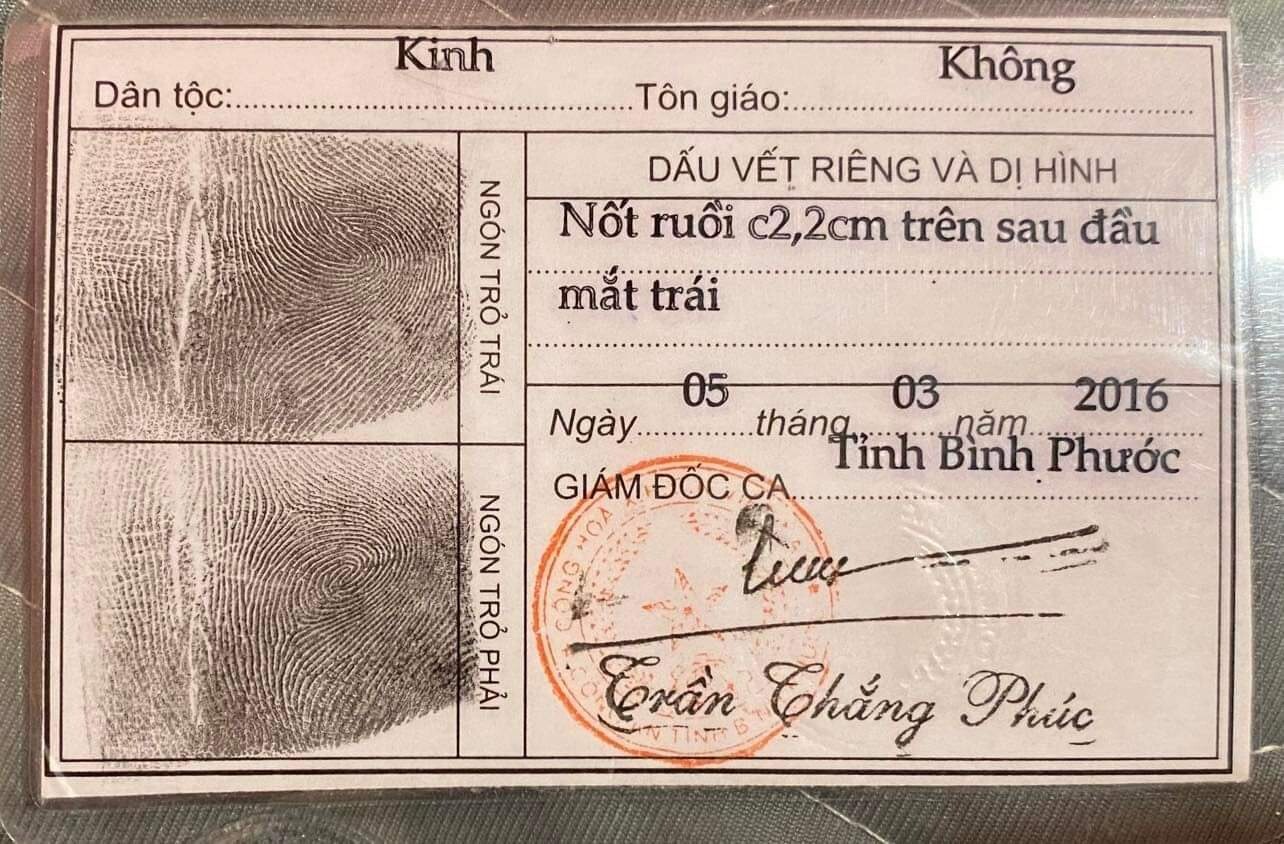 Dân tộc: Kinh Tôn giáo: Không
NGÓN TRỎ TRÁI
NGÓN TRỎ PHẢI
DẤU VẾT RIÊNG VÀ DỊ HÌNH
Nốt ruồi c2,2cm trên sau đầu
mắt trái
Ngày 05 tháng 03 năm 2016
GIÁM ĐỐC CA Tỉnh Bình Phước
CỘNG HÒA
TỈNH B
Trần Thắng Phúc